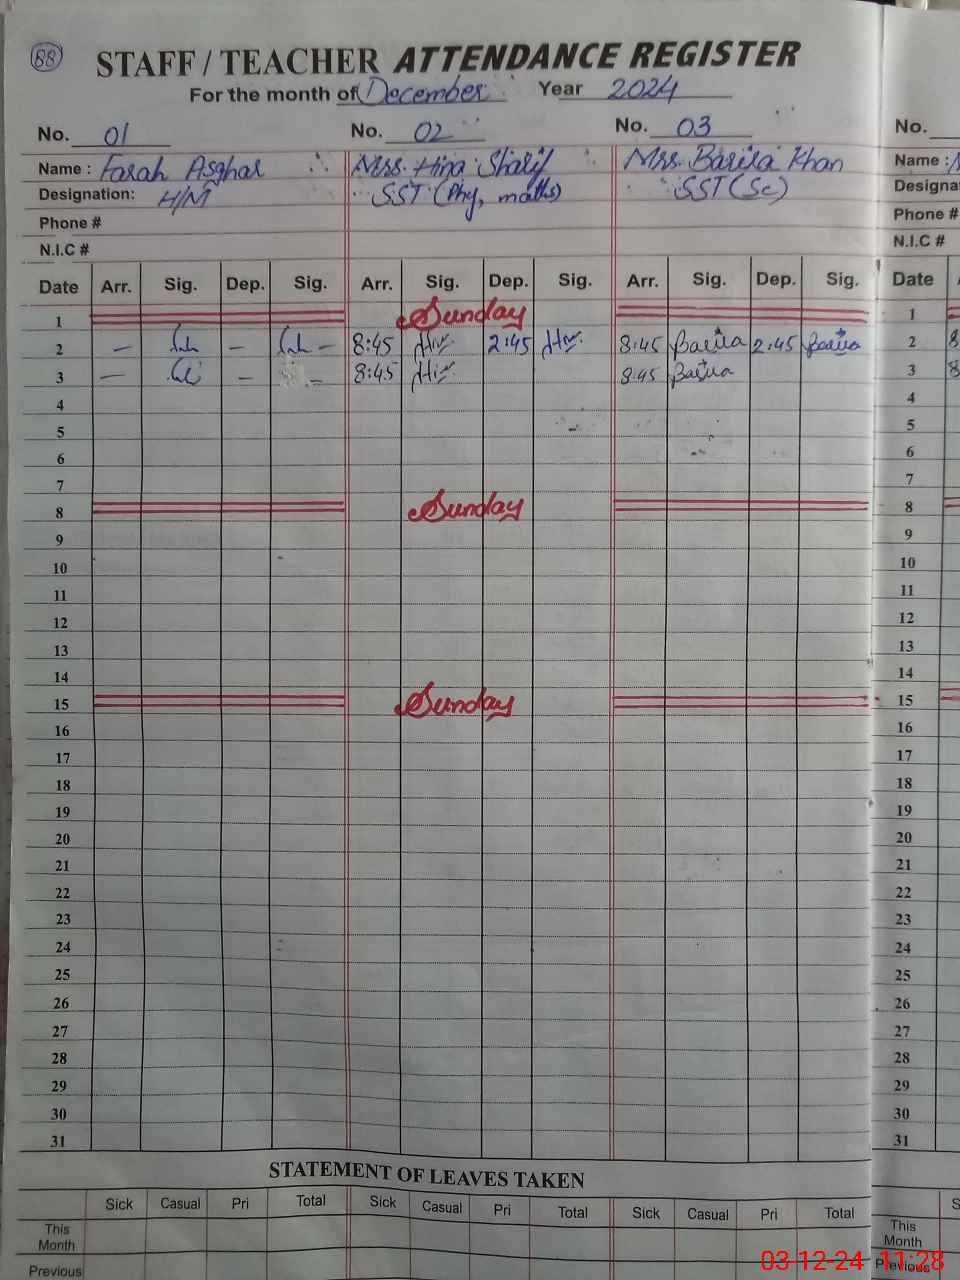 88
STAFF / TEACHER ATTENDANCE REGISTER
For the month of December Year 2024
No. 01 No. 02 No. 03 No.
Name : Farah Asghar Mrs. Hina Sharif Mrs. Barira Khan Name :
Designation: H/M SST (Phy, maths) SST (Sc) Designa
Phone # Phone #
N.I.C # N.I.C #
Date Arr. Sig. Dep. Sig. Arr. Sig. Dep. Sig. Arr. Sig. Dep. Sig. Date
1 Sunday 1
2 — — — 8:45 2:45 8:45 Barira 2:45 Barira 2 8
3 — — — 8:45 8:45 Barira 3 8
4 4
5 5
6 6
7 7
8 Sunday 8
9 9
10 10
11 11
12 12
13 13
14 14
15 Sunday 15
16 16
17 17
18 18
19 19
20 20
21 21
22 22
23 23
24 24
25 25
26 26
27 27
28 28
29 29
30 30
31 31
STATEMENT OF LEAVES TAKEN
Sick Casual Pri Total Sick Casual Pri Total Sick Casual Pri Total S
This Month This Month
Previous Previous
03-12-24 11:28